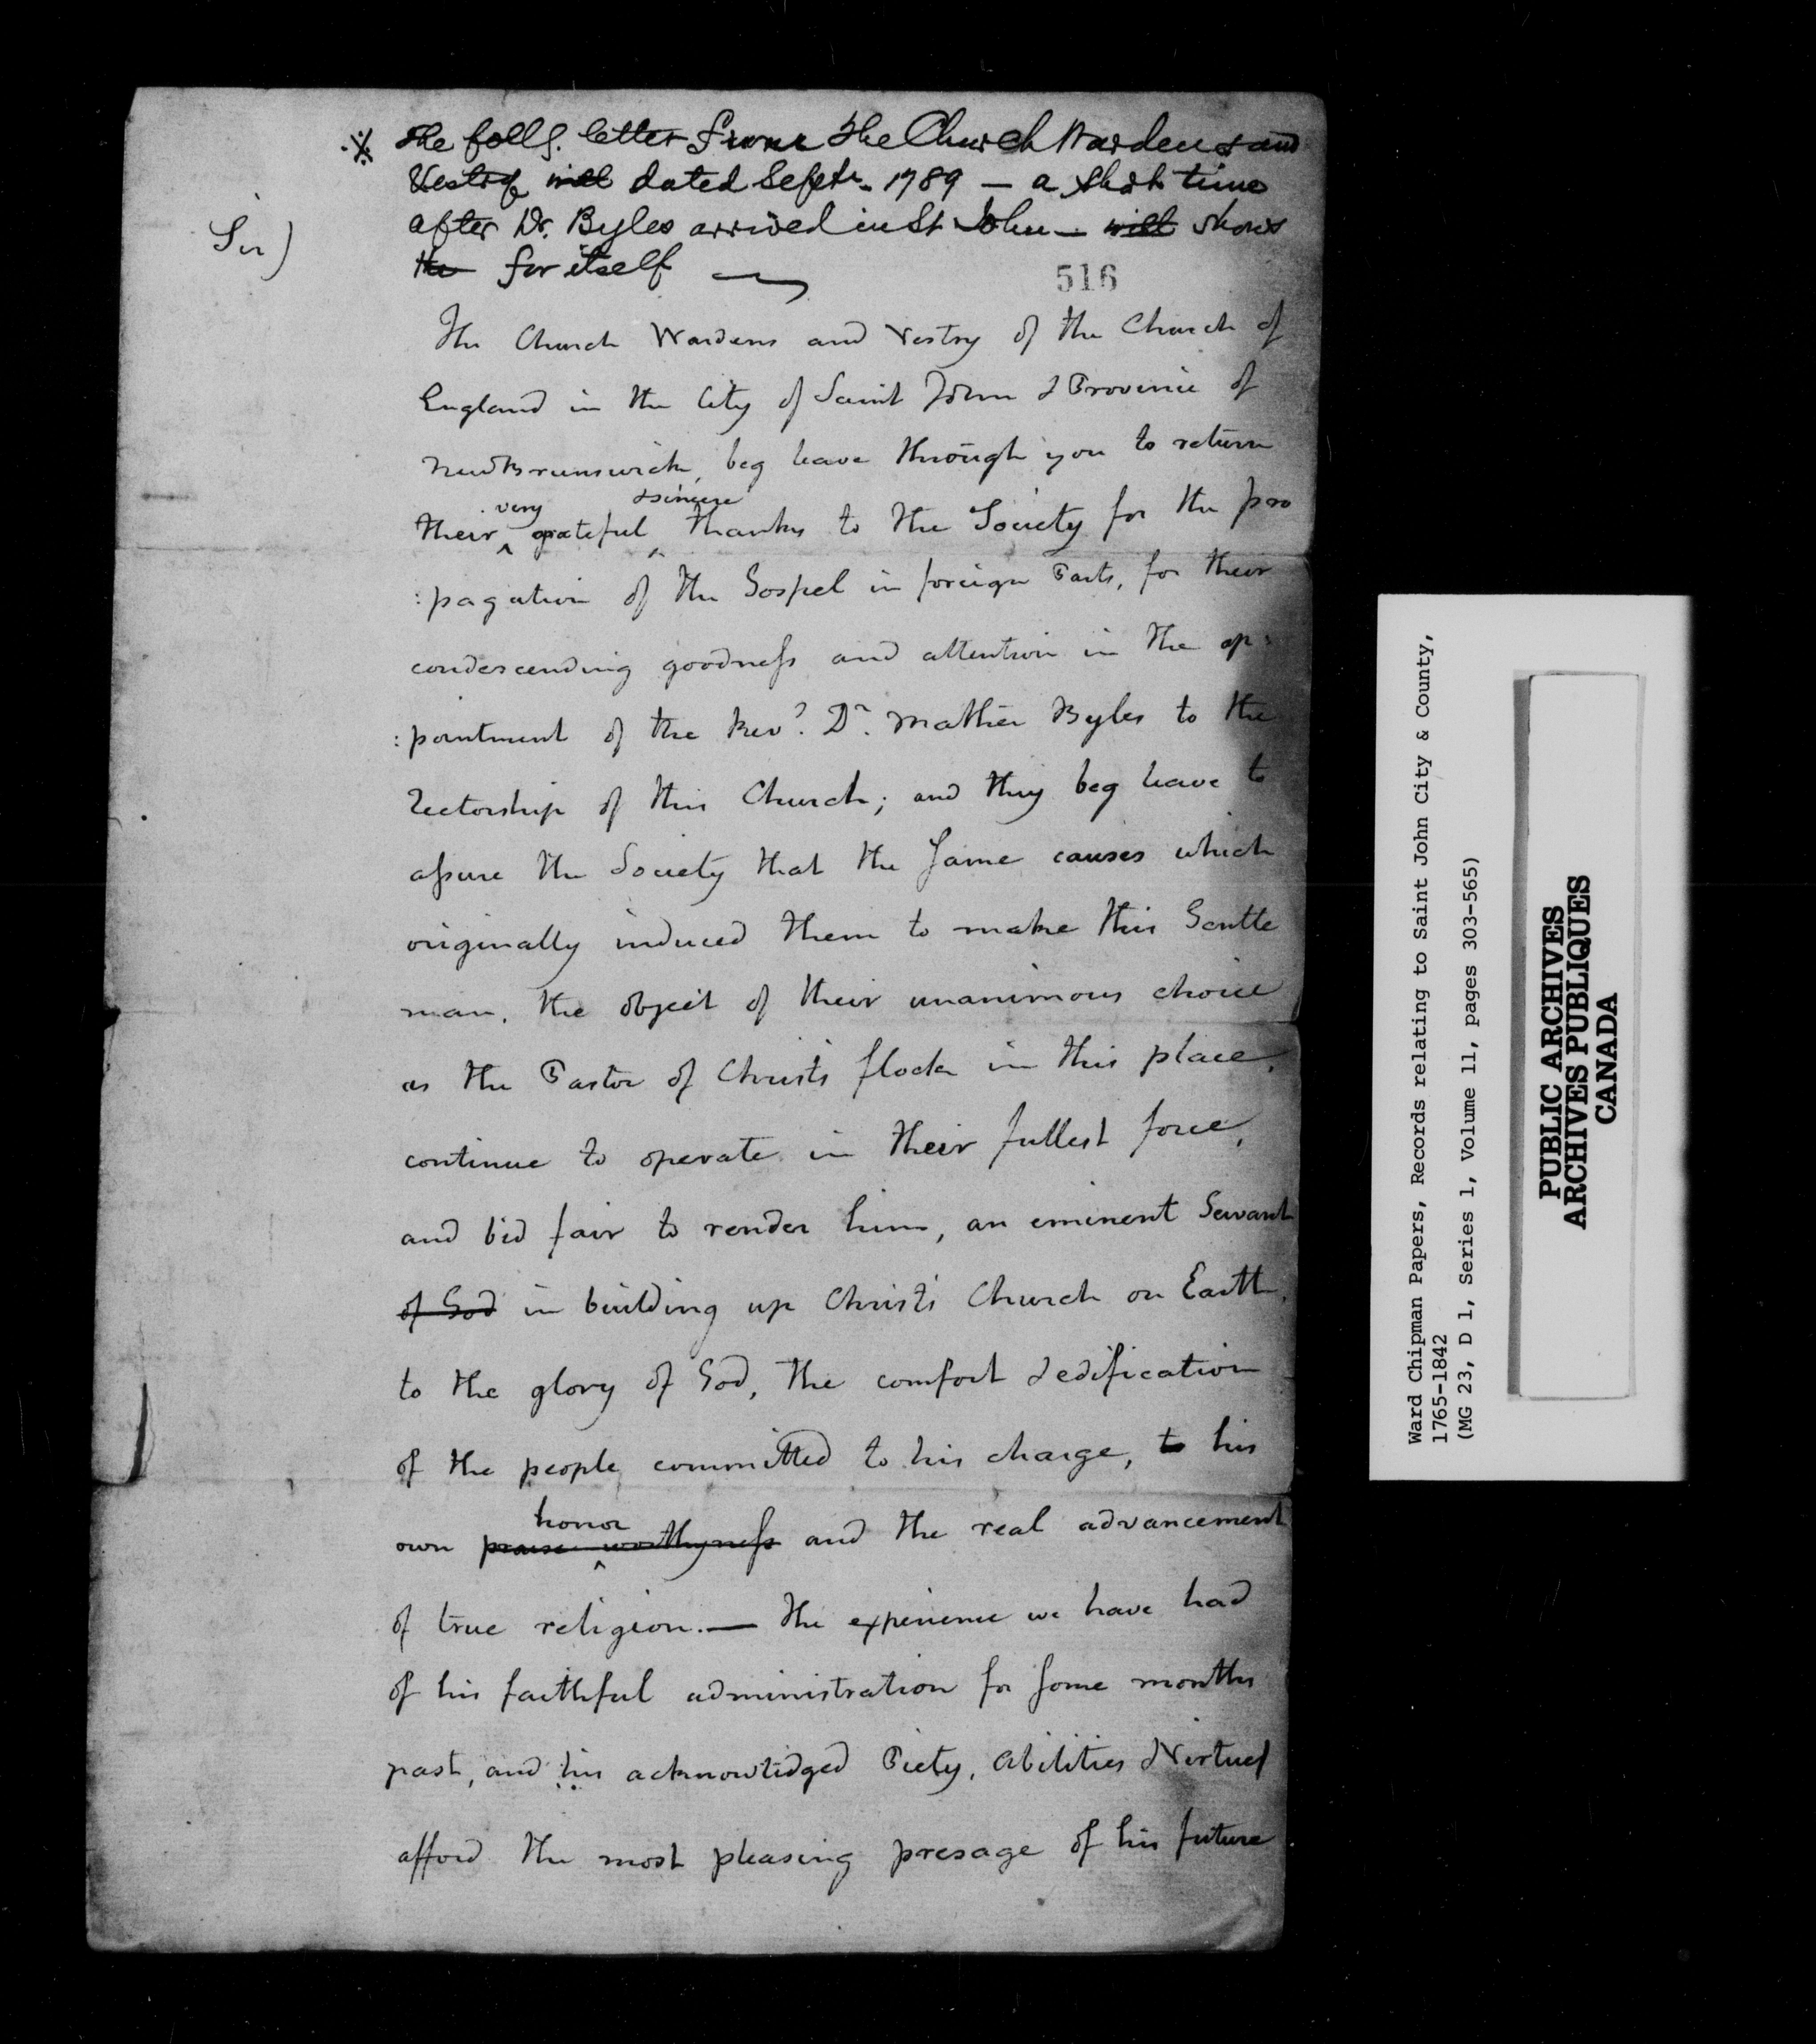 ※ The follg. letter from the Church Wardens and
Vestry will dated Septr. 1789 — a short time
after Dr. Byles arrived in St John — will shows
the for itself —
Sir)
516
The Church Wardens and Vestry of the Church of
England in the City of Saint John & Province of
New Brunswick, beg leave through you to return
very & sincere
their ^ grateful ^ thanks to the Society for the pro
:pagation of the Gospel in foreign Parts, for their
condescending goodneſs and attention in the ap:
:pointment of the Revd. Dr. Mather Byles to the
Rectorship of this Church; and they beg leave to
aſsure the Society that the ſame causes which
originally induced them to make this Gentle
man, the object of their unanimous choice
as the Pastor of Christ's flock in this place,
continue to operate in their fullest force,
and bid fair to render him, an eminent Servant
of God in building up Christ's Church on Earth,
to the glory of God, the comfort & edification
of the people committed to his charge, to his
honor
own praise-worthyneſs ^ and the real advancement
of true religion. — The experience we have had
of his faithful administration for ſome months
past, and his acknowledged Piety, Abilities & Virtues
afford the most pleasing presage of his future
Ward Chipman Papers, Records relating to Saint John City & County,
1765-1842
(MG 23, D 1, Series 1, Volume 11, pages 303-565)
PUBLIC ARCHIVES
ARCHIVES PUBLIQUES
CANADA